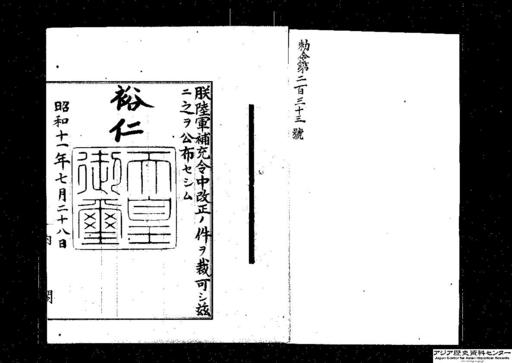 勅令第二百三十三號
朕陸軍補充令中改正ノ件ヲ裁可シ茲
ニ之ヲ公布セシム
裕仁
天皇
御璽
昭和十一年七月二十八日
内
閣
アジア歴史資料センター
Japan Center for Asian Historical Records